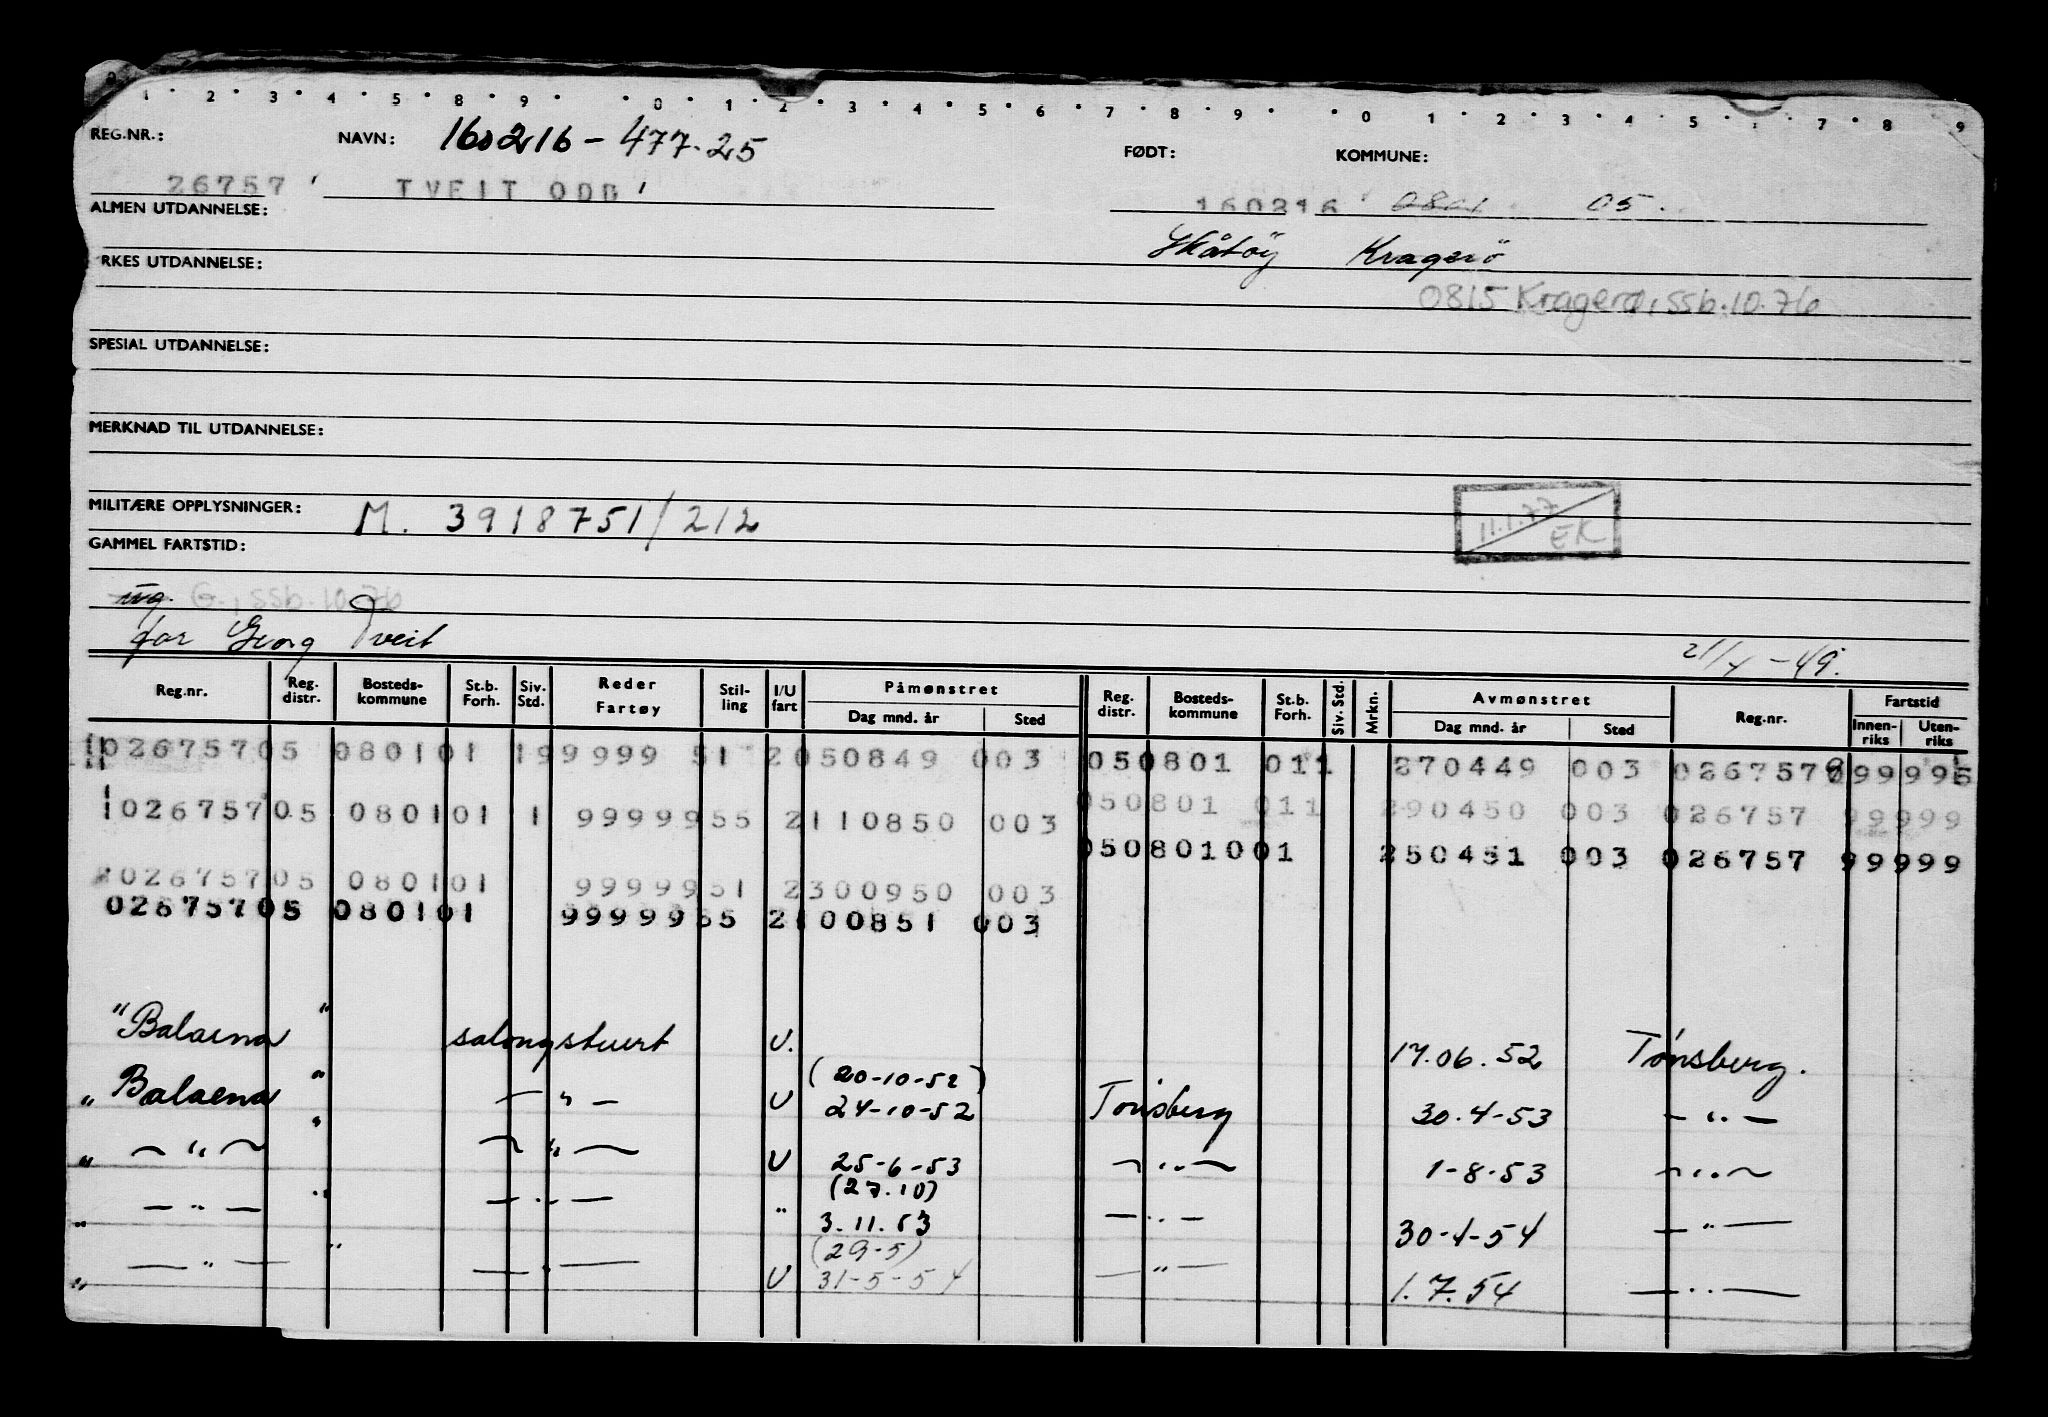 1 2 3 4 5 8 9 0 1 2 3 4 5 6 7 8 9 0 1 2 3 4 5 7 8 9
REG.NR.: NAVN: 160216-477.25 FØDT: KOMMUNE:
26757 TVEIT ODD 160216 0801 05.
ALMEN UTDANNELSE:
Skåtöy Kragerö
RKES UTDANNELSE:
0815 Kragerø, ssb.10.76
SPESIAL UTDANNELSE:
MERKNAD TIL UTDANNELSE:
MILITÆRE OPPLYSNINGER: M. 3918751/212
11.1.77 EK
GAMMEL FARTSTID:
ug. G., ssb.10.76
far Georg Tveit
Reg.nr. Reg. distr. Bosteds-kommune St.b. Forh. Siv. Std. Reder Fartøy Stil-ling I/U fart Påmønstret Dag mnd. år Sted Reg. distr. Bosteds-kommune St.b. Forh. Siv. Std. Mrkn. Avmønstret Dag mnd. år Sted Reg.nr. Fartstid Innen-riks Uten-riks
02675705 080101 199999 51 2050849 003 050801 011 270449 003 026757 99995
02675705 080101 1 9999955 2110850 003 050801 011 290450 003 026757 99999
050801001 250451 003 026757 99999
02675705 080101 9999951 2300950 003
02675705 080101 9999955 2100851 003
"Balaena" salongstuert U. 17.06.52 Tønsberg.
(20-10-52)
"Balaena" — " — U 24-10-52 Tønsberg 30.4-53 — " —
" — " — " — " — U 25-6-53 — " — 1-8-53 — " —
(27.10)
" — " — " — " — " 3.11.53 — " — 30-4-54 — " —
(29-5)
" — " — " — " — U 31-5-54 — " — 1.7.54 — " —